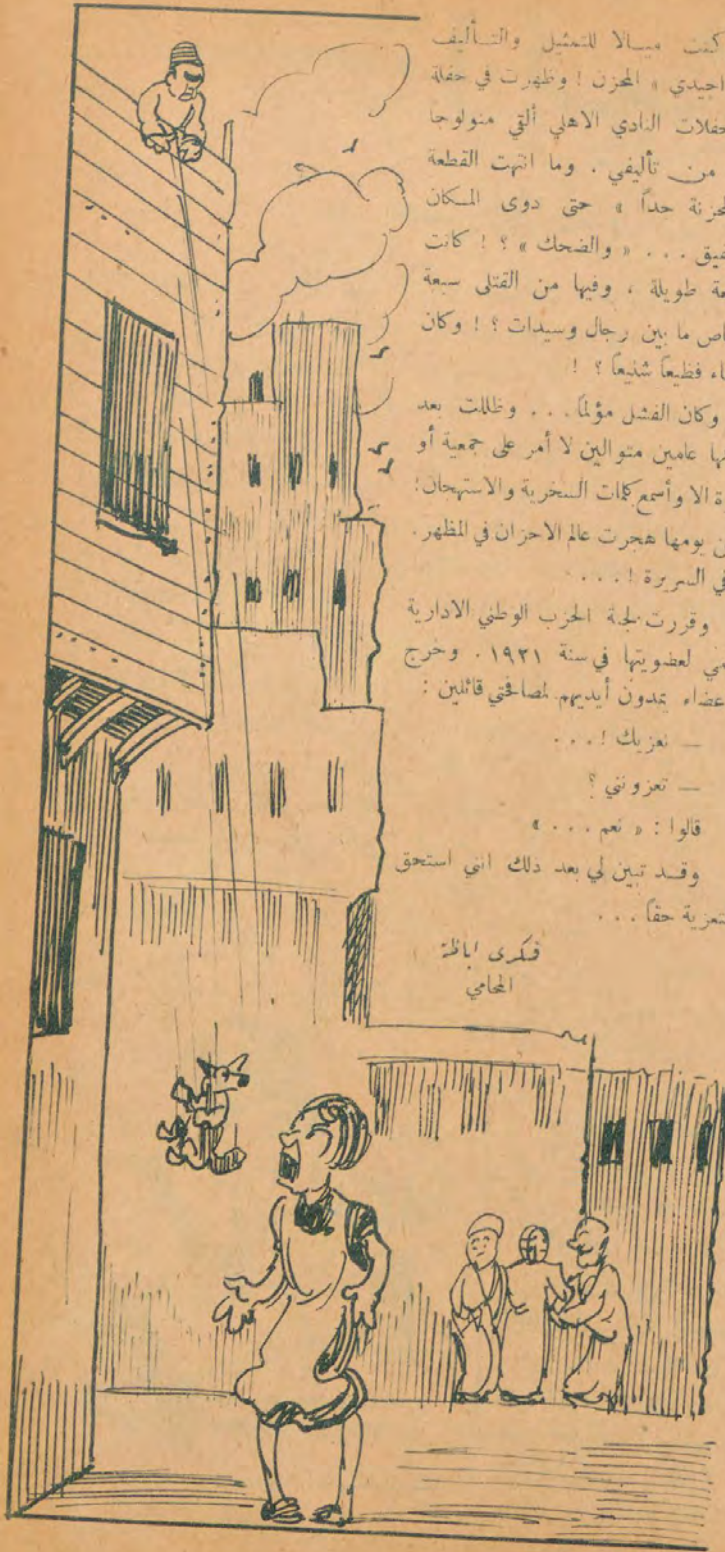 كنت ميالا للتمثيل والتأليف
اجيدي » المحزن ! وظهرت في حفلة
حفلات النادي الاهلي ألقي منولوجا
من تأليفي . وما انتهت القطعة
محزنة جداً » حتى دوى المكان
فيق . . . « والضحك » ؟ ! كانت
عة طويلة ، وفيها من القتلى سبعة
اص ما بين رجال وسيدات ؟ ! وكان
اء فظيعاً شنيعاً ؟ !
وكان الفشل مؤلماً . . . وظللت بعد
ها عامين متوالين لا أمر على جمعية أو
ة الا وأسمع كلمات السخرية والاستهجان !
ن يومها هجرت عالم الاحزان في المظهر .
في السريرة ! . . . .
وقررت لجنة الحزب الوطني الادارية
ي لعضويتها في سنة ١٩٢١ . وخرج
عضاء يمدون أيديهم لمصافحتي قائلين :
— نعزيك ! . . .
— تعزونني ؟
قالوا : « نعم . . . »
وقد تبين لي بعد ذلك انني استحق
تعزية حقاً . . .
فكرى اباظة
المحامي